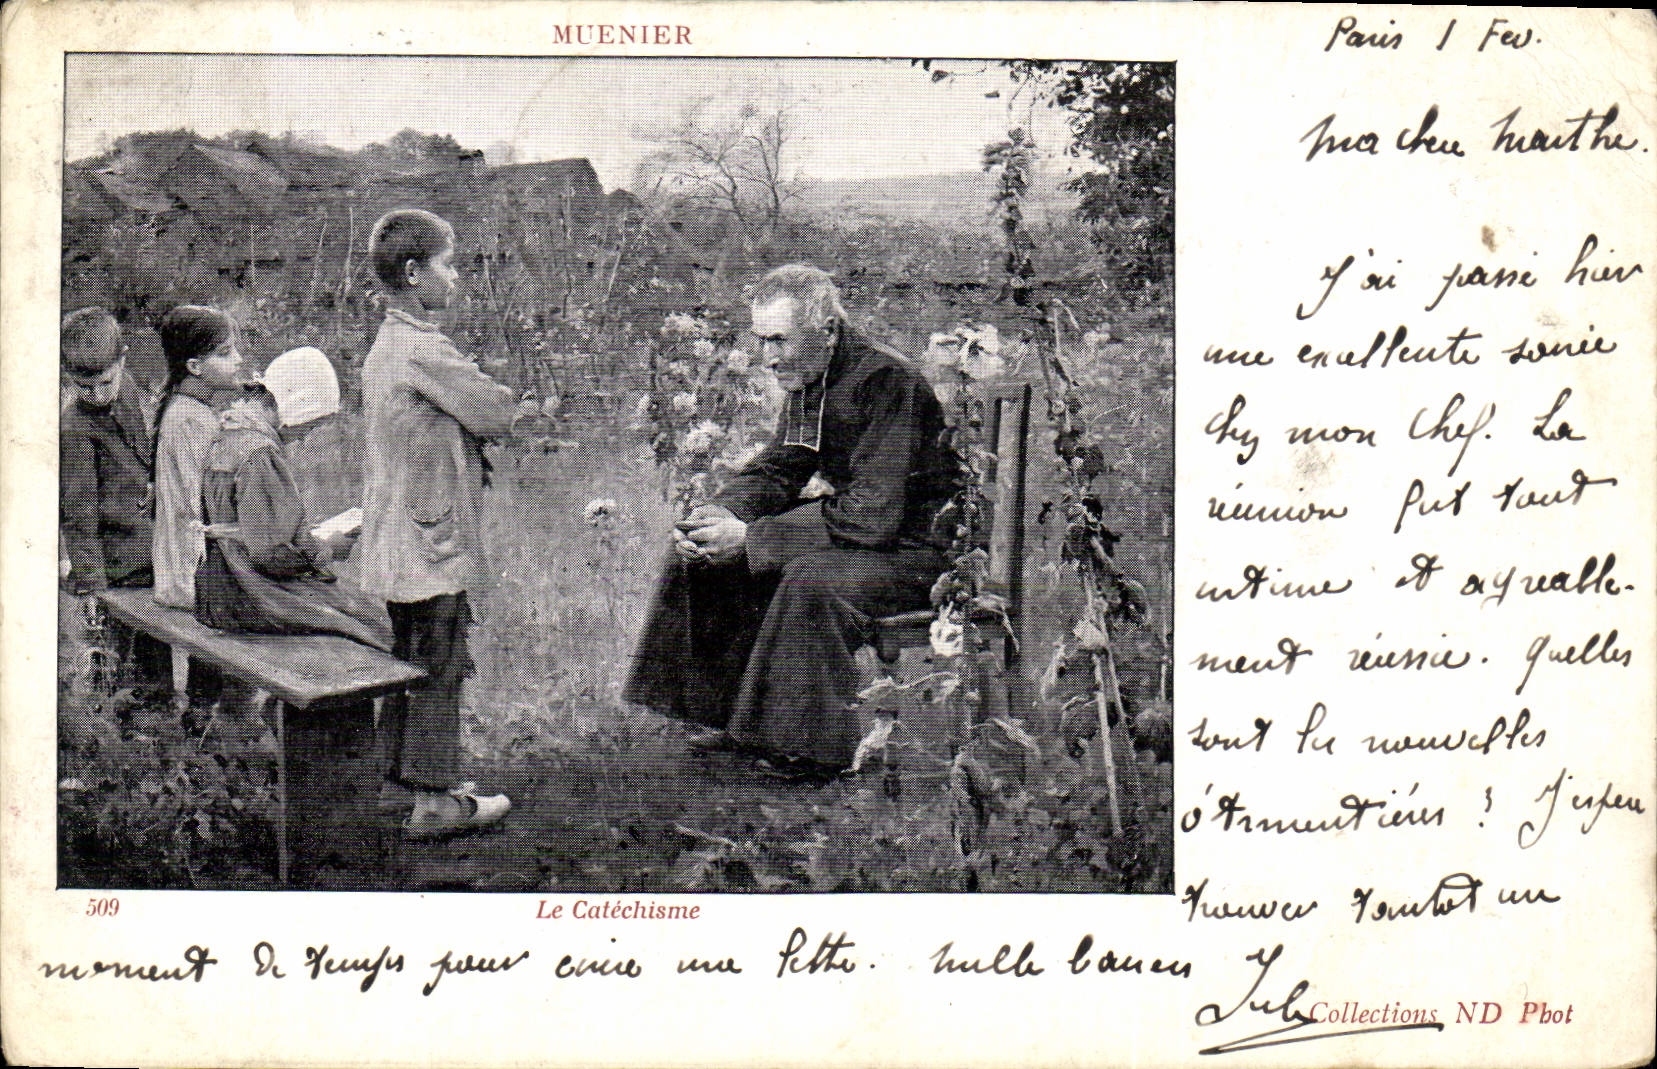 MUENIER
Paris 1 Fev.
Ma chère Marthe.
J'ai passé hier
une excellente soirée
chez mon Chef. La
réunion fut tout
intime et agréable-
ment réussie. Quelles
sont les nouvelles
d'Armentières ? J'espère
trouver tantôt un
509
Le Catéchisme
moment de temps pour écrire une lettre. Mille baisers
Jules
Collections ND Phot